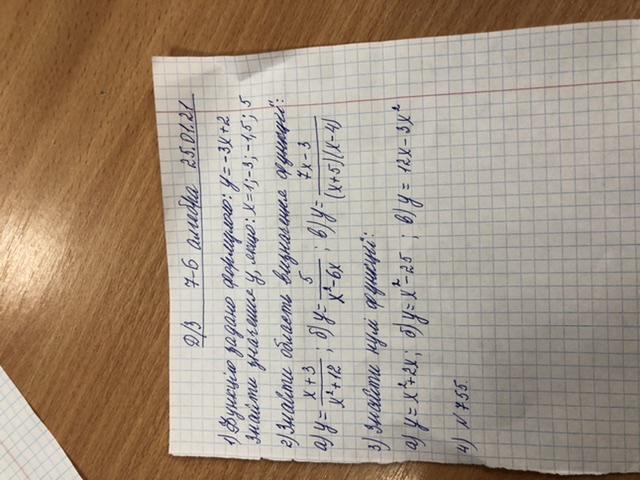 Д/З 7-Б алгебра 25.01.21
1) Функцію задано формулою: y = -3x+2
Знайти значення y, якщо: x=1; -3; -1,5; 5
2) Знайти область визначення функції:
а) y = (x+3)/(x²+12); б) y = 5/(x²-6x); в) y = (7x-3)/((x+5)(x-4))
3) Знайти нулі функції:
а) y = x²+2x; б) y = x²-25; в) y = 12x-3x²
4) №755.